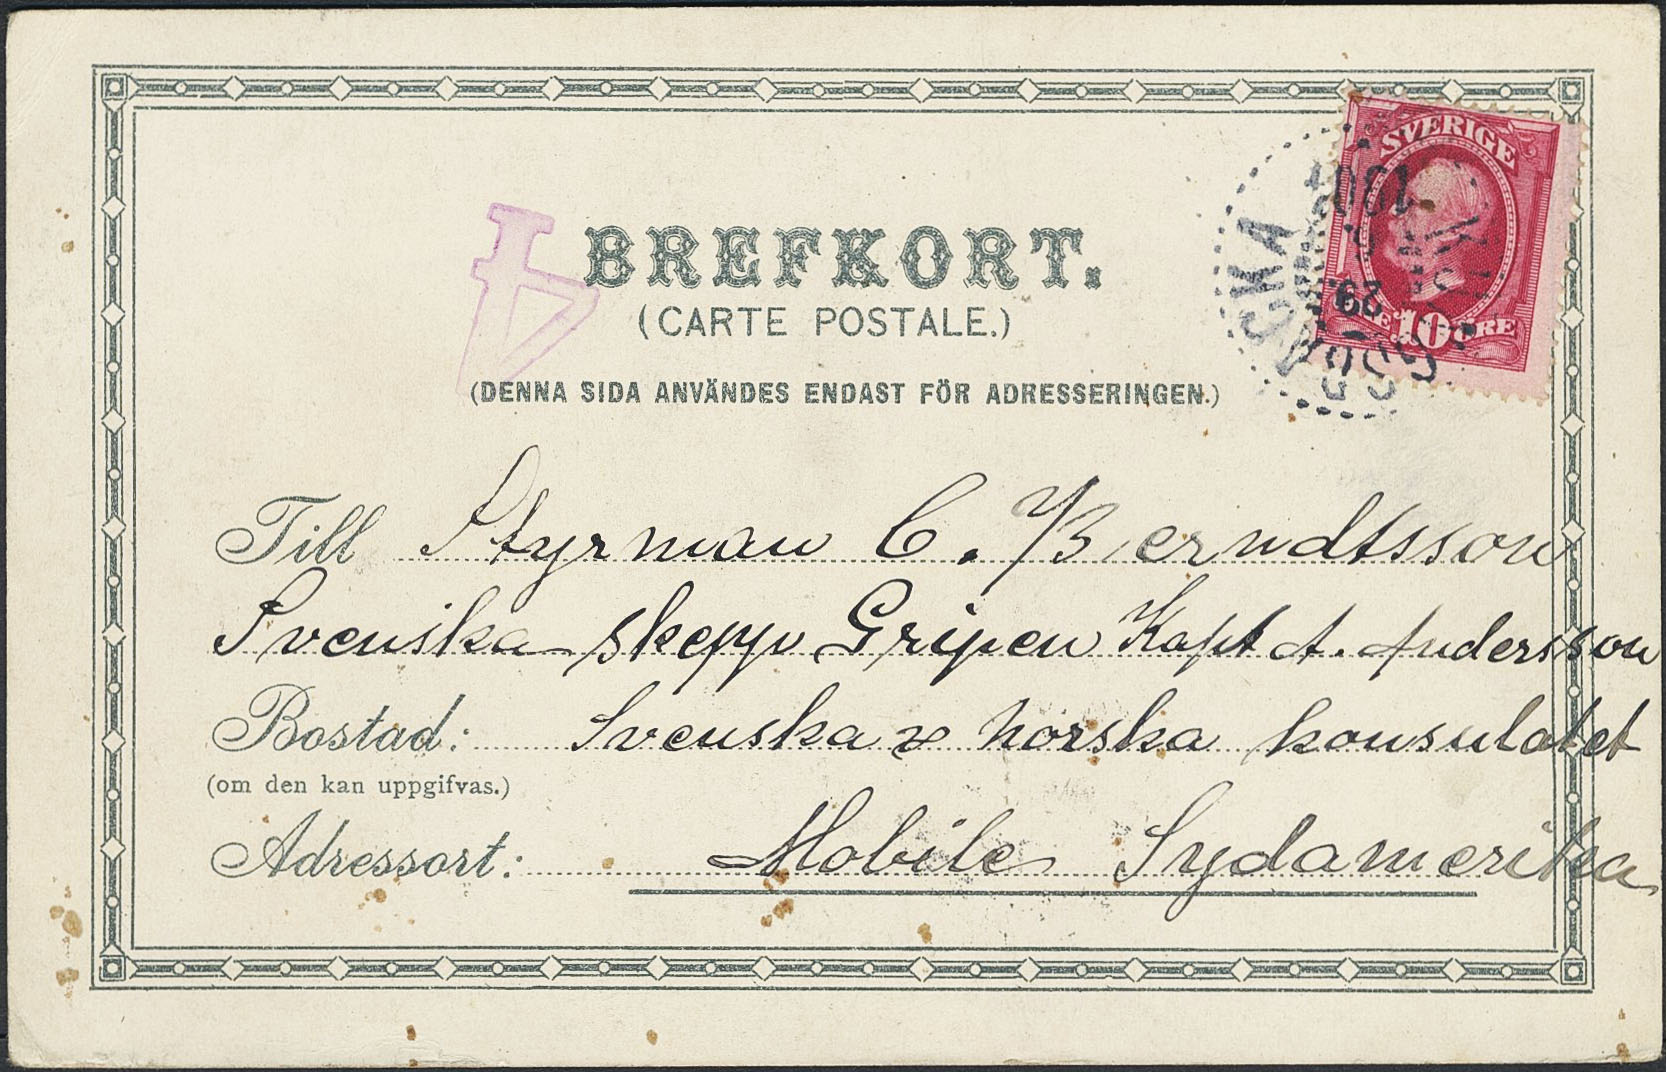 SVERIGE
10 ÖRE
4
BREFKORT.
(CARTE POSTALE.)
(DENNA SIDA ANVÄNDES ENDAST FÖR ADRESSERINGEN.)
Till Styrman C. Berndtsson
Svenska skepp Gripen Kapt A. Andersson
Bostad: Svenska & norska konsulatet
(om den kan uppgifvas.)
Adressort: Mobile Sydamerika